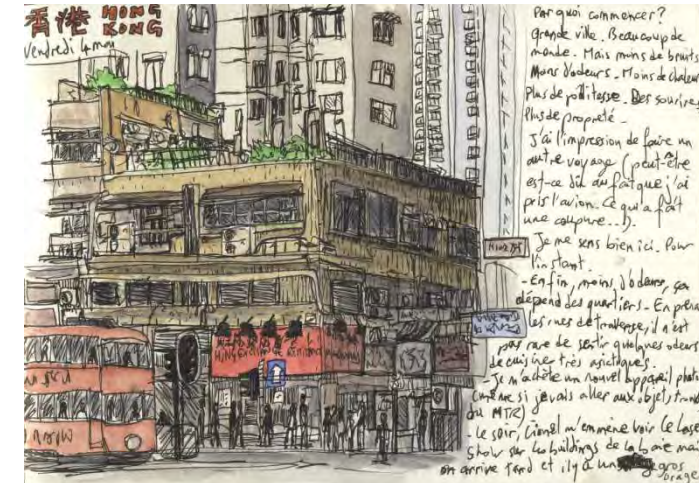 香港 HONG KONG
Vendredi 4 mai
Par quoi commencer?
Grande ville. Beaucoup de
monde. Mais moins de bruits
Moins d'odeurs. Moins de chaleur
Plus de politesse. Des sourires
Plus de propreté.
J'ai l'impression de faire un
autre voyage (peut-être
est-ce dû au fait que j'ai
pris l'avion. Ce qui a fait
une coupure...!).
Je me sens bien ici. Pour
l'instant.
- Enfin, moins d'odeurs, ça
dépend des quartiers. En
les rues de traverse, il n'est
pas rare de sentir quelques odeurs
de cuisine très asiatiques.
- Je m'achète un nouvel appareil photo
(même si je vais aller aux objets
du MTR)
- Le soir, Lionel m'emmène voir le
Show sur les buildings de la baie mais
on arrive tard et il y a un gros
orage